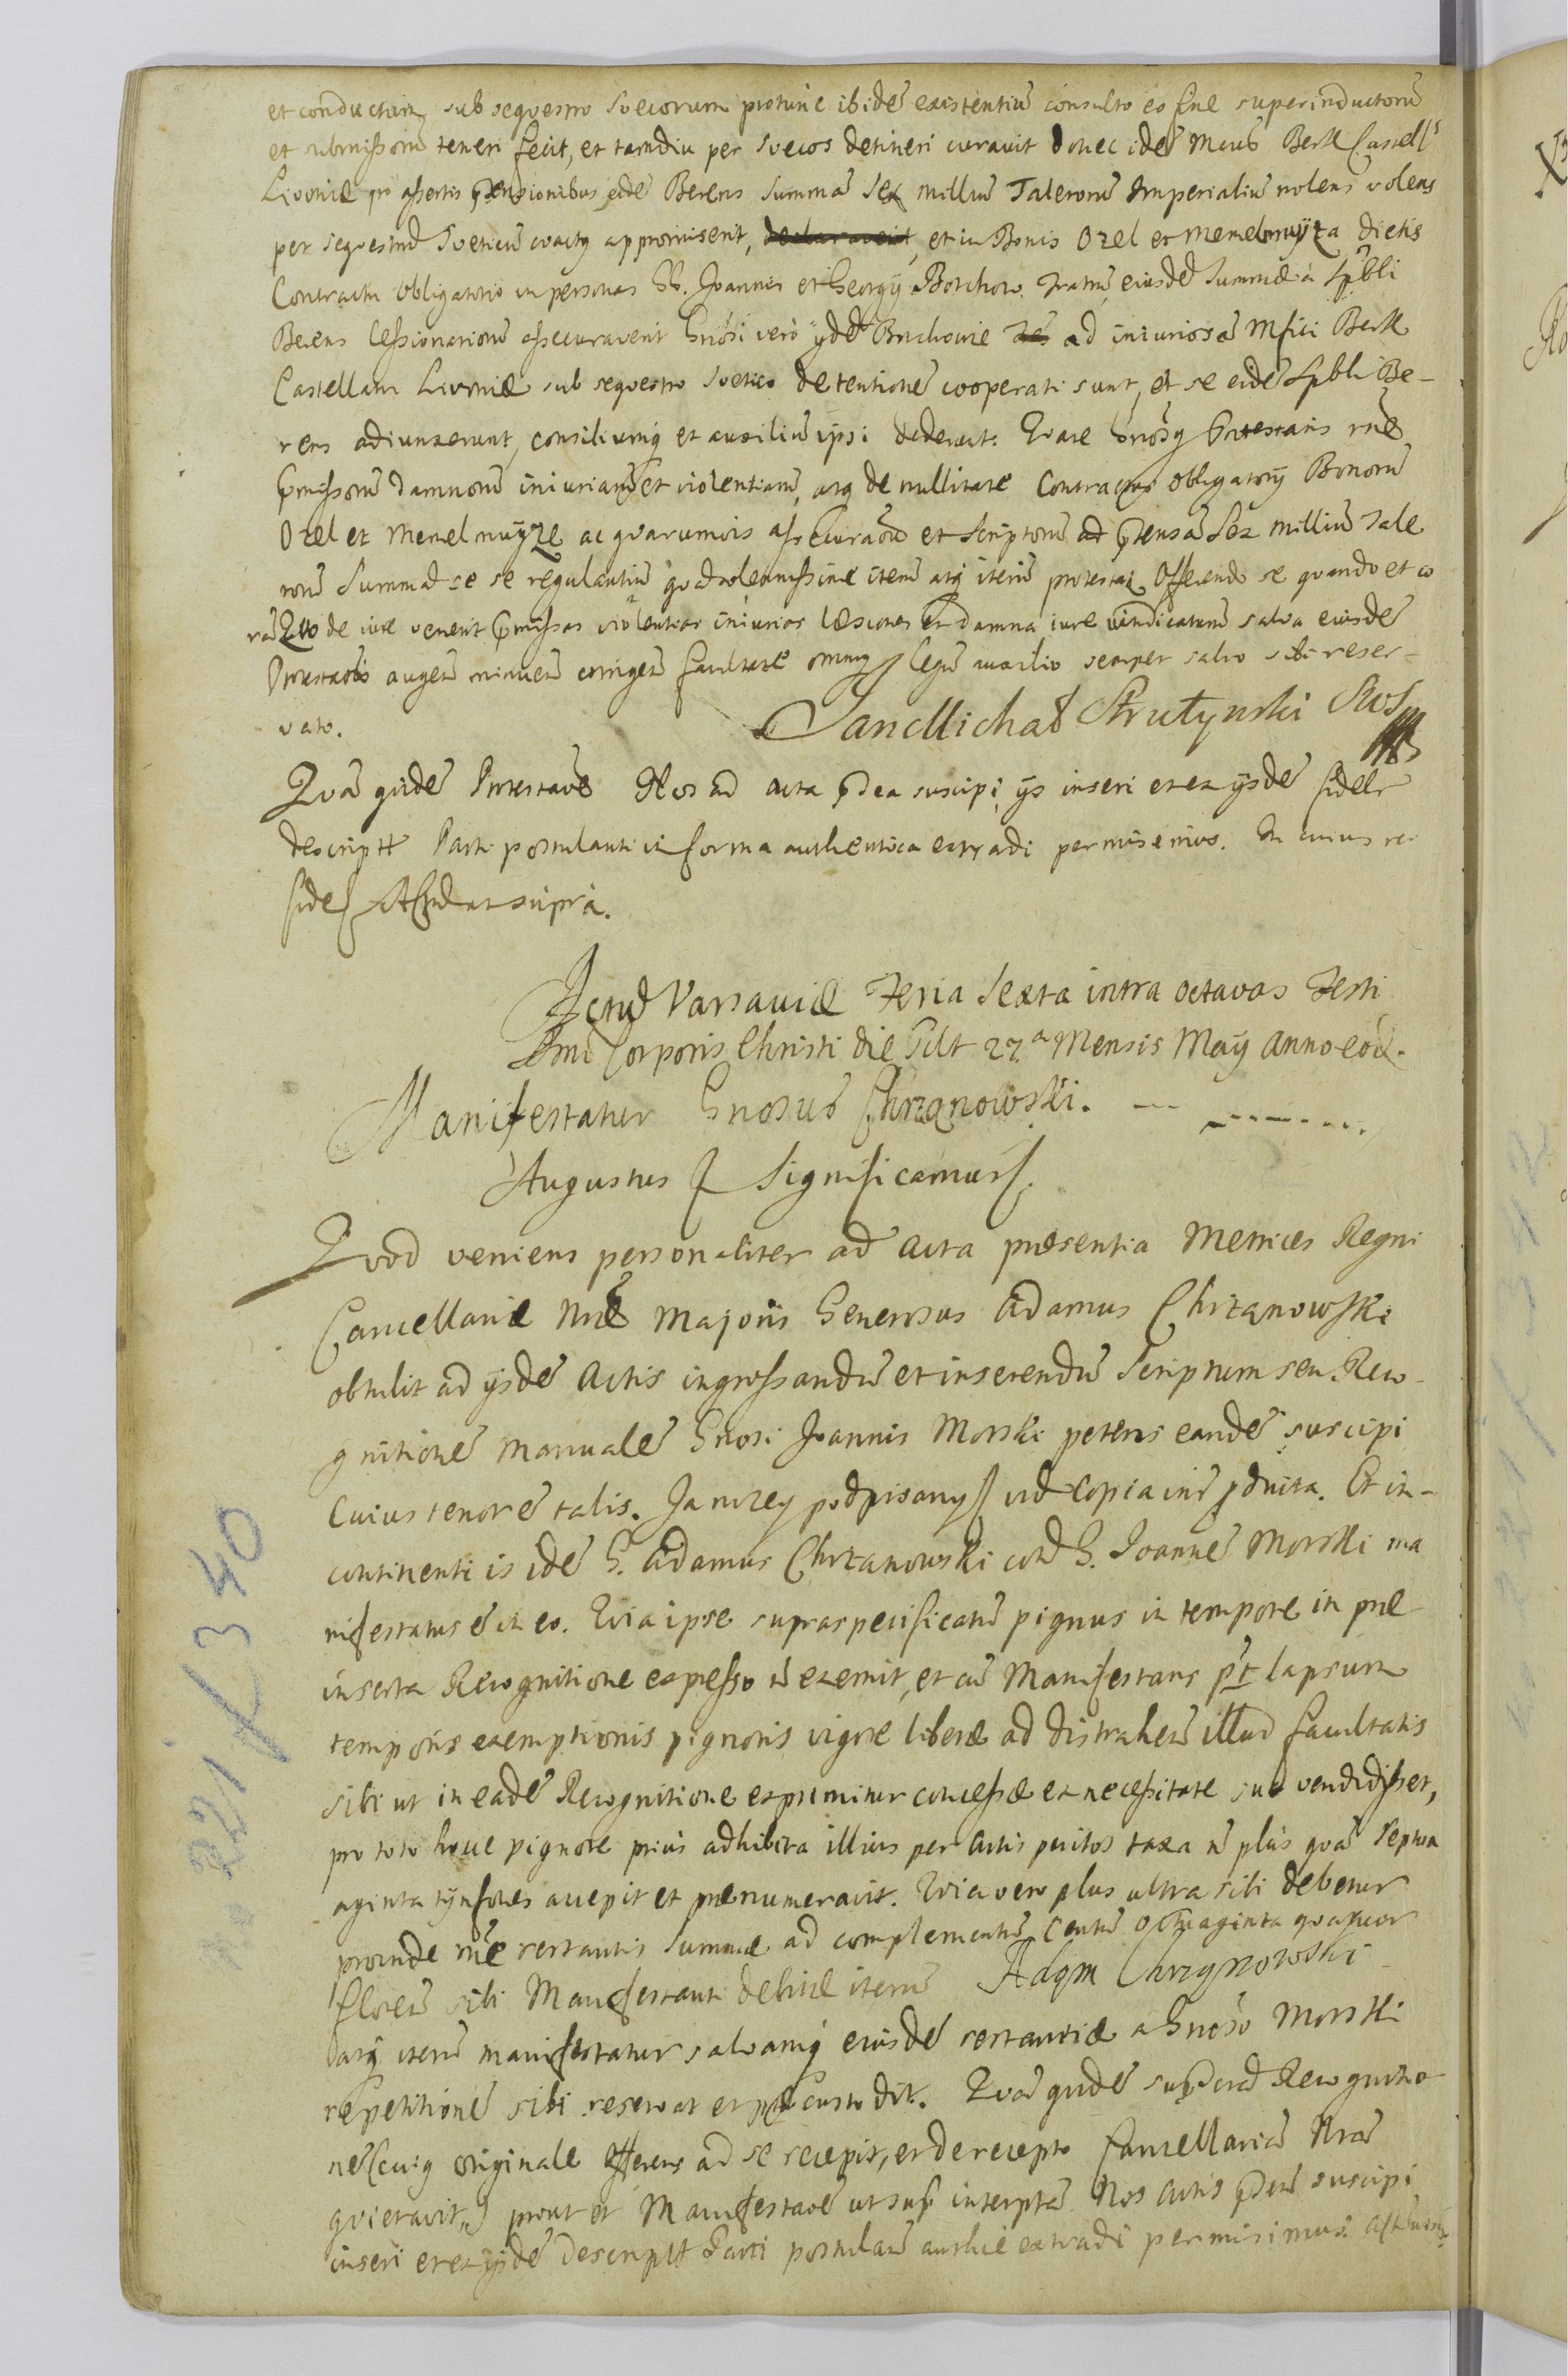 et conductam sub sequestro Svecorum protunc ibidē existentiū consulto eo fine superinductorū
et submissorū teneri fecit, et tamdiu per Svecos detineri curavit donec idē Mcus Berk Castells
Livoniæ pro assertis prætensionibus eidē Berens Summā Sex milliū Talerorū Imperialiū nolens volens
per sequestrū Sveticū coactq appromiserit, et in Bonis Ozel et Memelmuyza dictis
Contractu obligatorio in personas GG. Joannis et Georgij Borchow Fratrū, eiusdē Summæ a Spbli
Berens Cessionariorū assecuraverit Gnōsi verò ijdē Borchowie ad iniuriosā Mfici Berk
Castellani Livoniæ sub sequestro Svetico detentionē cooperati sunt, et se eidē Spbli Be-
rens adiunxerunt, consiliumq et auxiliū ipsi dederunt. Quare Gnōsq Protestans rnē
præmissorū damnorū iniuriarūq et violentiarū, atq de nullitate Contractus obligatorij Bonorū
Ozel et Memelmuyze ac quarumvis assecuraōnū et scriptorū ad prætensā Sex milliū Tale
rorū Summā se se regulantiū qd solennissime iterū atq iterū protestat Offerendo se quando et co
ram Quo de iure venerit præmissas violentias iniurias læsiones et damna iure vindicaturū salva eiusdē
Protestaōis augēn minuēn corrigēn facultate omnīq Legū auxilio semper salvo sibi reser-
vato.
Jan Michał Strutynski Stos
Quā quidē Protestaōnē Nos ad acta præa suscipi ijs inseri et ex ijsdē fideler
descriptt Parti postulanti in forma authentica extradi permisimus. In cuius rei
fidē Act ut supra.
Actū Varsaviæ Feria Sexta intra octavas Festi
Smi Corporis Christi die scilt 27.a Mensis Maij Anno eod.
Manifestatur Gnosus Chrzanowski. -- -------
Augustus Significamus
Quod veniens personaliter ad Acta præsentia Metrices Regni
Cancellariæ Nræ Majoris Generosus Adamus Chrzanowski
obtulit ad ijsdē Actis ingrossandū et inserendū Scriptum seu Reco-
gnitionē manualē Gnosi Joannis Morski petens eandē suscipi
Cuius tenore talis. Ja nizey podpisany vid copia inf pdnita. Et in-
continenti is idē G. Adamus Chrzanowski cond G. Joannē Morski ma
nifestatus ē in eo. Quia ipse supraspecificatū pignus in tempore in præ
inserta Recognitione expresso n exemit, et cū Manifestans pt lapsum
temporis exemptionis pignoris vigore liberæ ad distrahēn illud facultatis
sibi ut in eadē Recognitione exprimitur concessæ ex necessitate sua vendidisset,
pro toto hocce pignore prius adhibita illius per Artis peritos taxa n plus quā Septua
aginta tynfones accepit et prænumeravit. Quia vero plus ultra sibi debetur
proinde rnē restantis Summæ ad complementū Centū octuaginta quatuor
florēn sibi Manifestanti debitæ iterū
Adam Chrzanowski
atq iterū manifestatur salvamq eiusdē restantiæ a Gnōso Morski
repetitionē sibi reservat et præcustodit. Quā quidē suprad Recognitio
nē (cuiq originale offerens ad se recepit, et de recepto Cancellariā Nrām
quietavit) prout et Manifestaōnē ut supr interptā Nos Actis præn suscipi
inseri et ex ijsdē descriptt Parti postulan authē extradi permisimus. Act ut
221 / 340